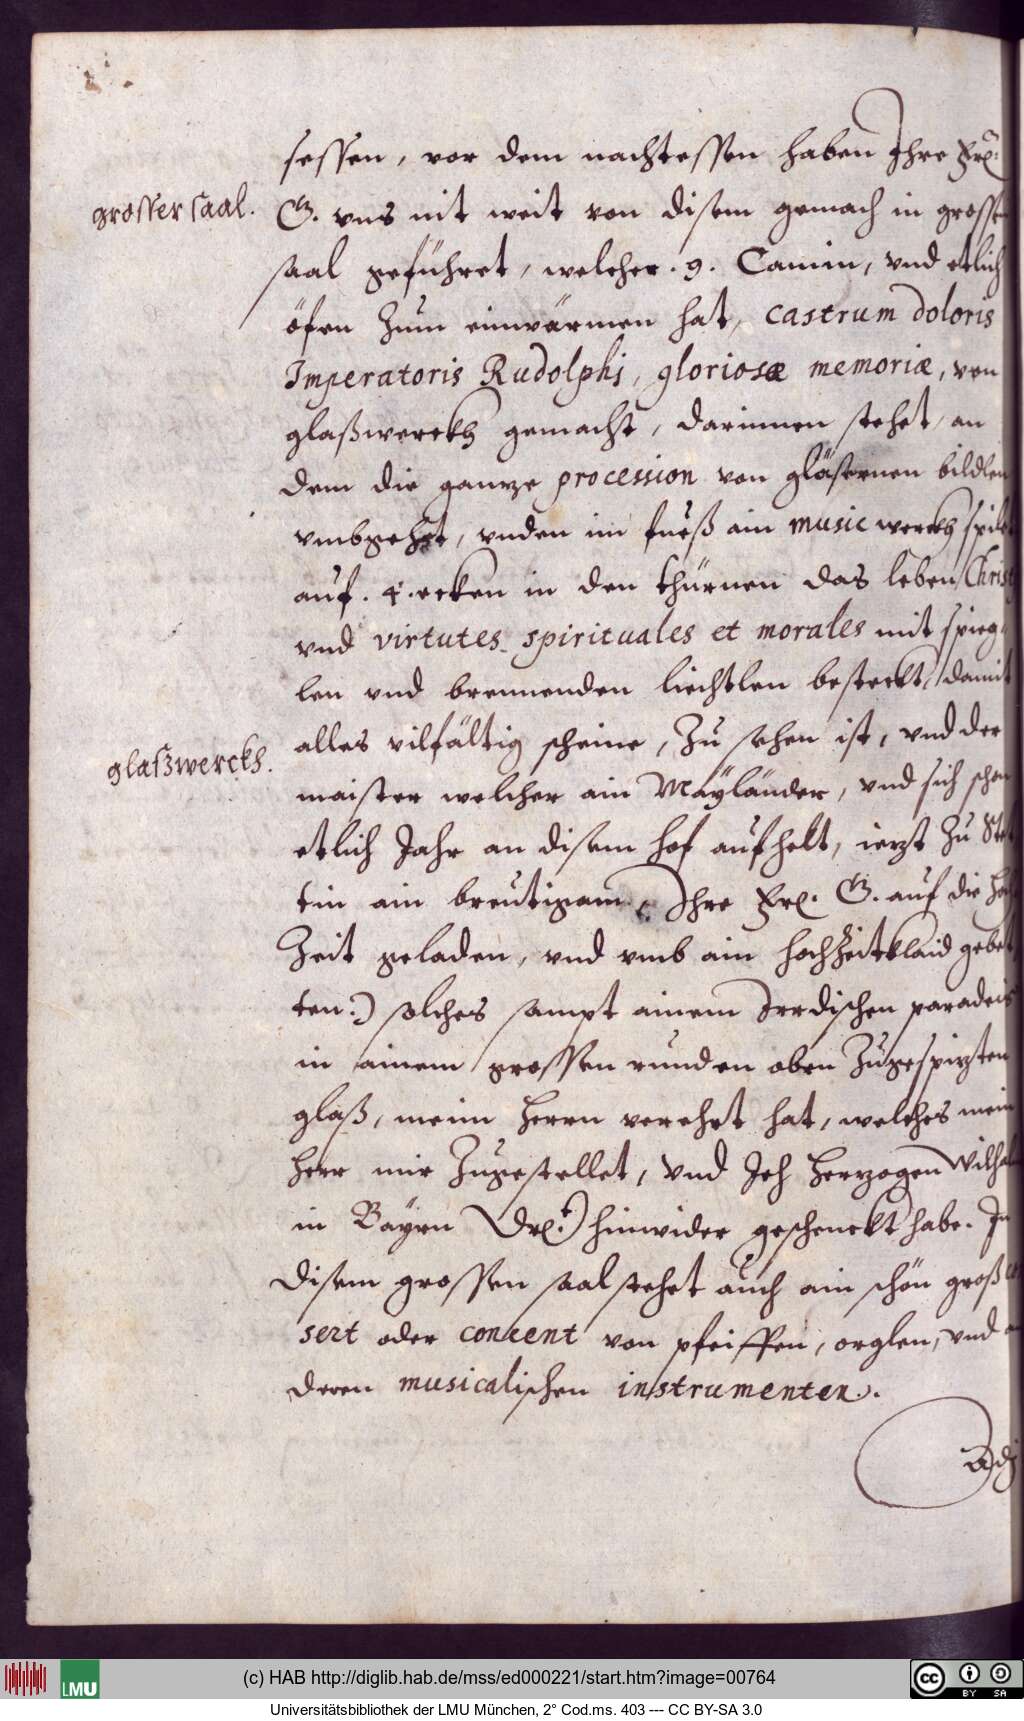 sessen, vor dem nachtessen haben Ihre Frl:
grosser saal.
G. vns nit weit von disem gemach in grossen
saal geführet, welcher .9. Camin, vnd etlich
öfen zum einwärmen hat, castrum doloris
Imperatoris Rudolphi, gloriosæ memoriæ, von
glaßwerckh gemacht, darinnen stehet, an
dem die gantze procession von gläsernen bildlen
vmbgehet, vnden im fueß ain music werckh spilet
auf .4. ecken in den thürnen das leben Christi
vnd virtutes spirituales et morales mit spieg-
len vnd brennenden liechtlen besteckt, damit
alles vilfältig scheine, zu sehen ist, vnd der
glaßwerckh.
maister welcher ain Mäyländer, vnd sich schon
etlich Jahr an disem hof aufhelt, ietzt zu Stet
tin ain breutigam (: Ihre Frl. G. auf die hoch
Zeit geladen, vnd vmb ain hochzeitklaid gebet
ten:) solches sampt ainem Irrdischen paradeis
in ainem grossen runden oben zugespitzten
glaß, meim Herrn verehrt hat, welches mein
Herr mir zugestellet, vnd Ich Hertzogen Wilhalm
in Bayrn Drl:) hinwider geschenckt habe. In
disem grossen saal stehet auch ain schön groß con
sert oder concent von pfeiffen, orglen, vnd an
deren musicalischen instrumenten.
Adj
(c) HAB http://diglib.hab.de/mss/ed000221/start.htm?image=00764
LMU
cc BY SA
Universitätsbibliothek der LMU München, 2° Cod.ms. 403 --- CC BY-SA 3.0